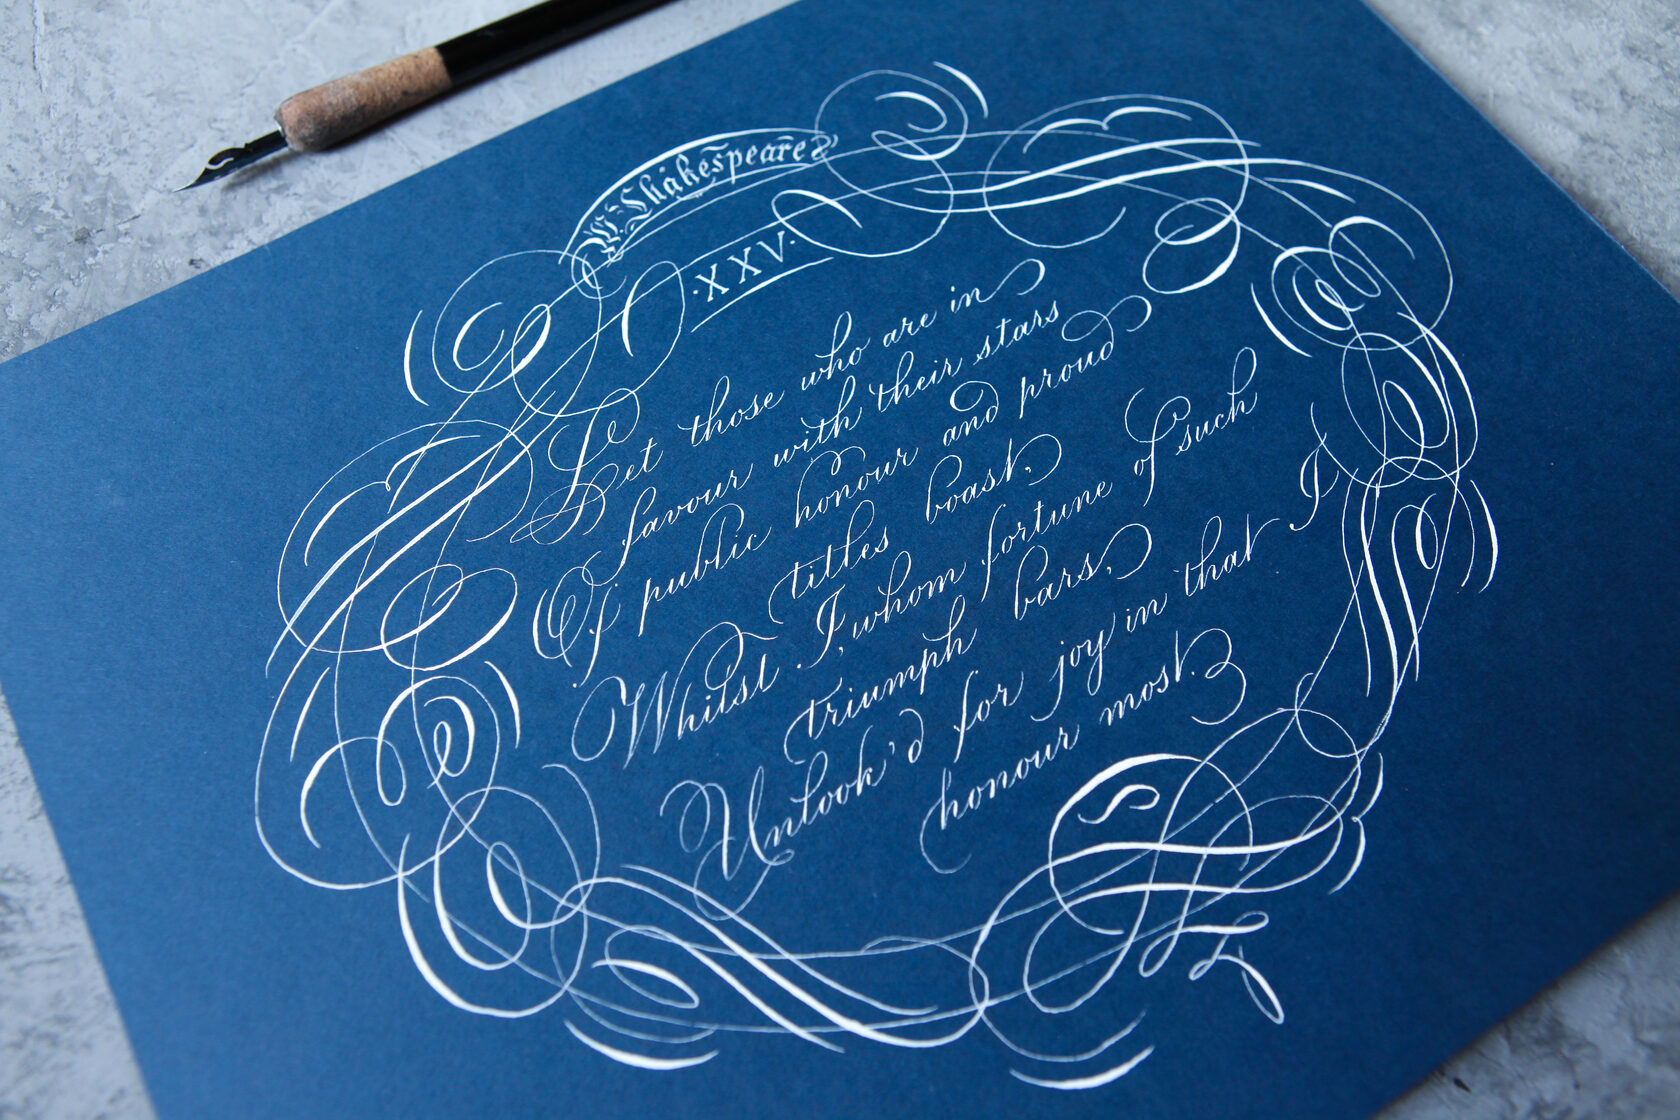 W. Shakespeare
· XXV ·
Let those who are in
favour with their stars
Of public honour and proud
titles boast,
Whilst I, whom fortune of such
triumph bars,
Unlook'd for joy in that I
honour most.